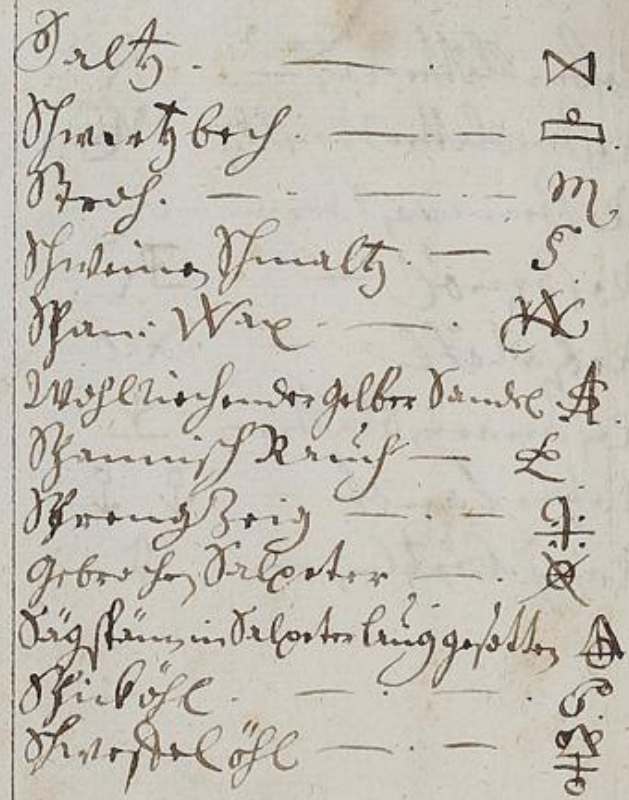 Saltz. — .
Schwartzbech. — —
Stroh. — . — —
Schweinen Schmaltz. —
Span: Wax. — .
Wohlriechender gelber Sandel
Spannisch Rauch —
Spreng Zeig — . —
Gebrochen Salpeter — .
Sägspänn in Salpeter laug gesotten
Spicköhl. — . —
Schweffel öhl — . —